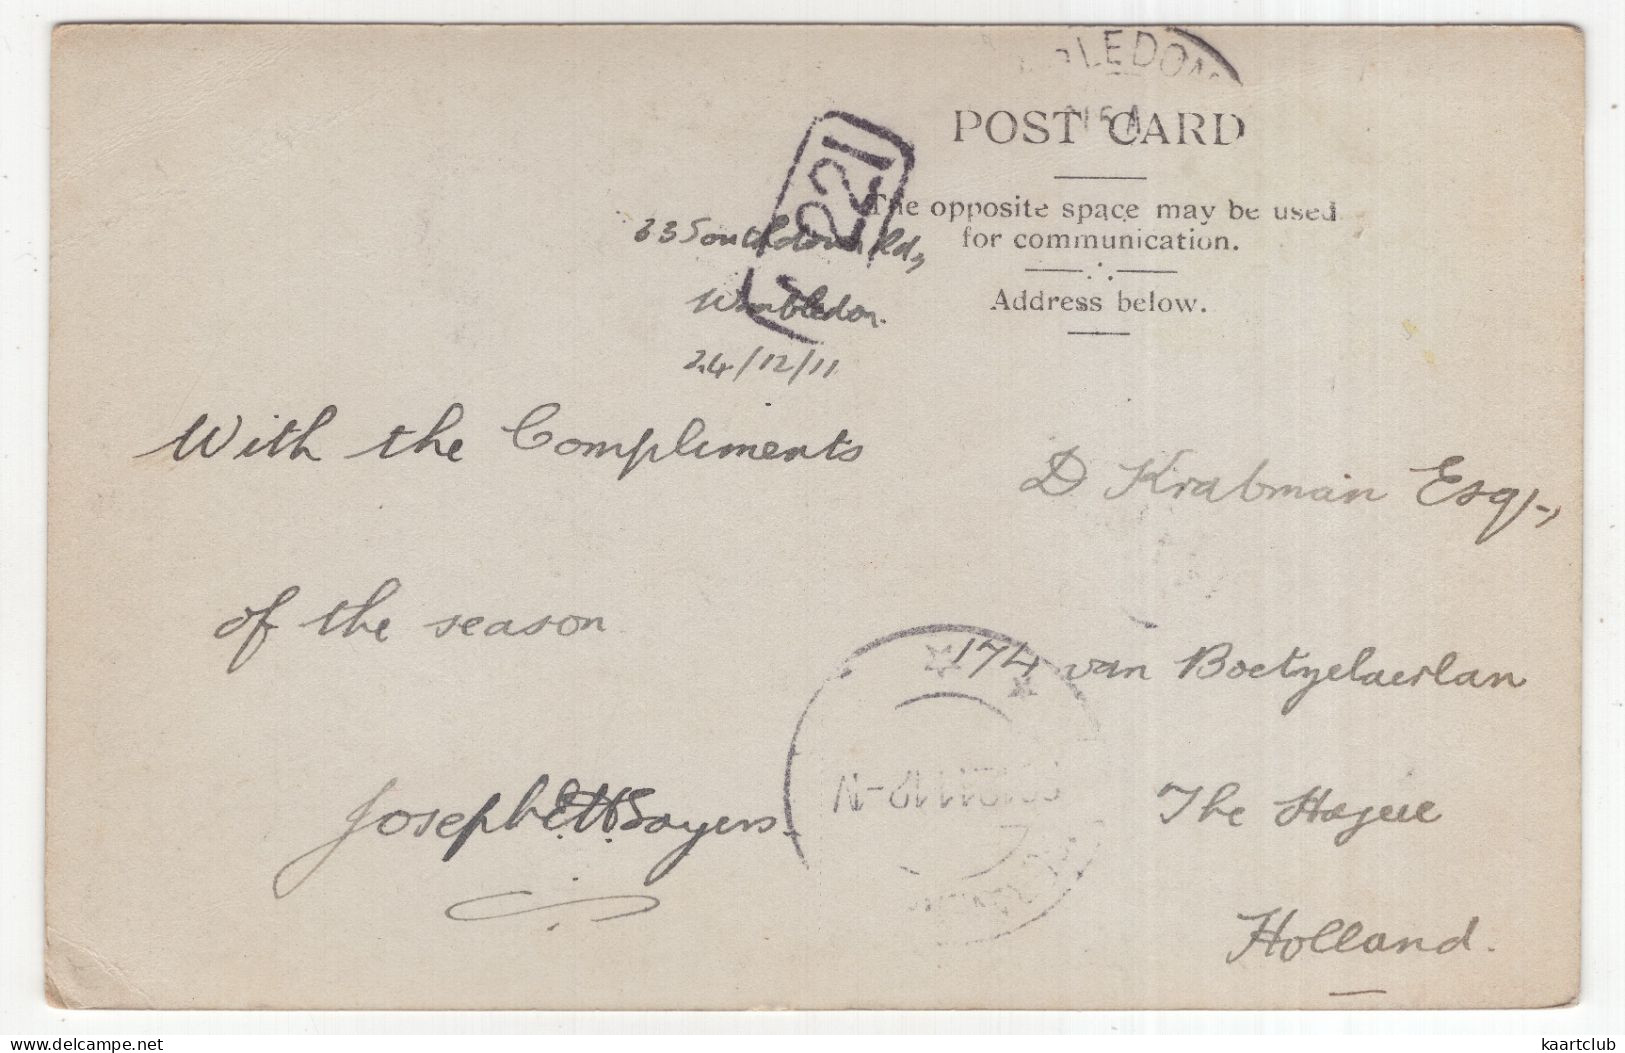 BLEDON
POST CARD
The opposite space may be used
for communication.
Address below.
221
33 Southdown Rd,
Wimbledon.
24/12/11
With the Compliments
of the season
Joseph E.H. Sayers
D Krabman Esq.,
174 van Boetzelaerlan
The Hague
Holland.
delcampe.net
kaartclub